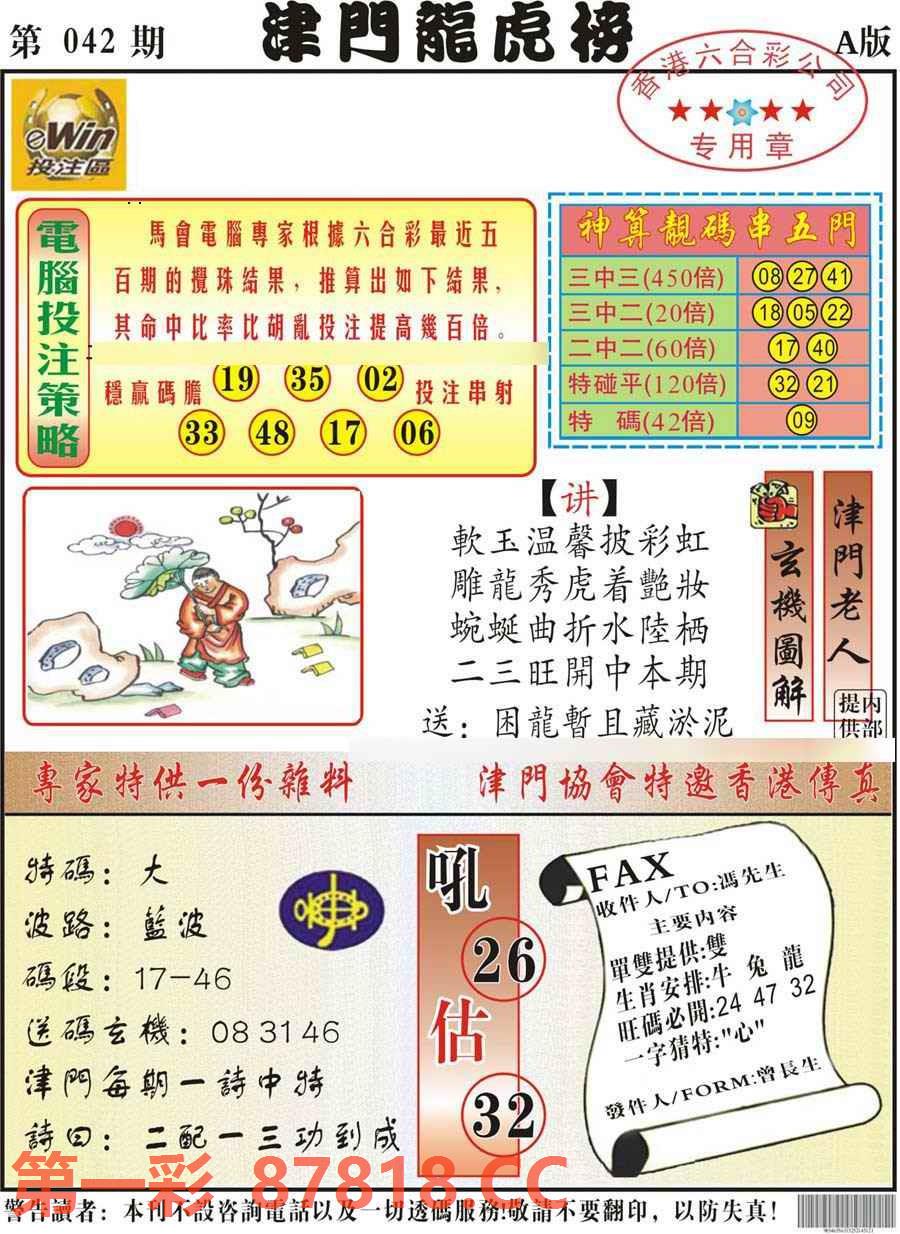 第 042 期
津門龍虎榜
A版
香港六合彩公司
专用章
eWin
投注區
電腦投注策略
馬會電腦專家根據六合彩最近五
百期的攪珠結果，推算出如下結果，
其命中比率比胡亂投注提高幾百倍。
穩贏碼膽 19 35 02 投注串射
33 48 17 06
神算靚碼串五門
三中三(450倍) 08 27 41
三中二(20倍) 18 05 22
二中二(60倍) 17 40
特碰平(120倍) 32 21
特 碼(42倍) 09
【讲】
軟玉温馨披彩虹
雕龍秀虎着艷妝
蜿蜒曲折水陸栖
二三旺開中本期
送：困龍暫且藏淤泥
玄機圖解
津門老人
内部提供
專家特供一份雜料
津門協會特邀香港傳真
特碼：大
波路：藍波
碼段：17-46
送碼玄機：08 31 46
津門每期一詩中特
詩曰：二配一三功到成
吼
26
估
32
FAX
收件人/TO:馮先生
主要内容
單雙提供:雙
生肖安排:牛 兔 龍
旺碼必開:24 47 32
一字猜特:"心"
發件人/FORM:曾長生
第一彩 87818.CC
警告讀者：本刊不設咨詢電話以及一切透碼服務!敬請不要翻印，以防失真！